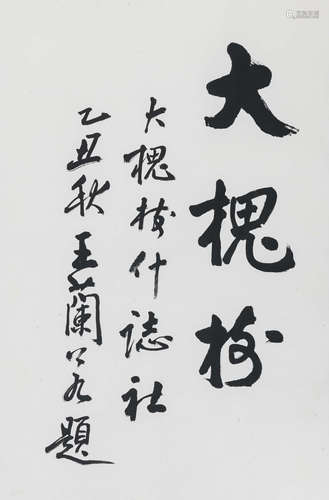 大槐树
大槐树什誌社
乙丑秋王蘭若題